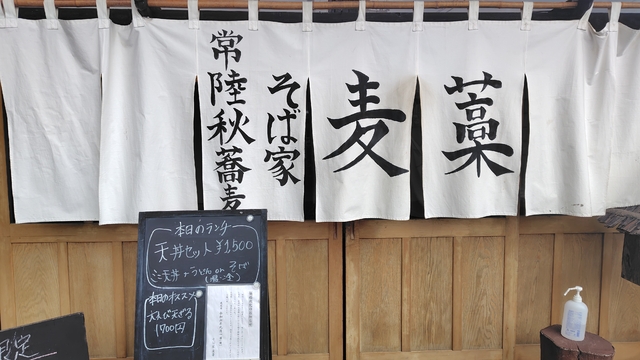 常陸秋蕎麦
そば家
麦
藁
本日のランチ
天丼セット ¥1,500
ミニ天丼 + うどん or そば
(温・冷)
本日のオススメ
大えび天ざる
1700円
限定